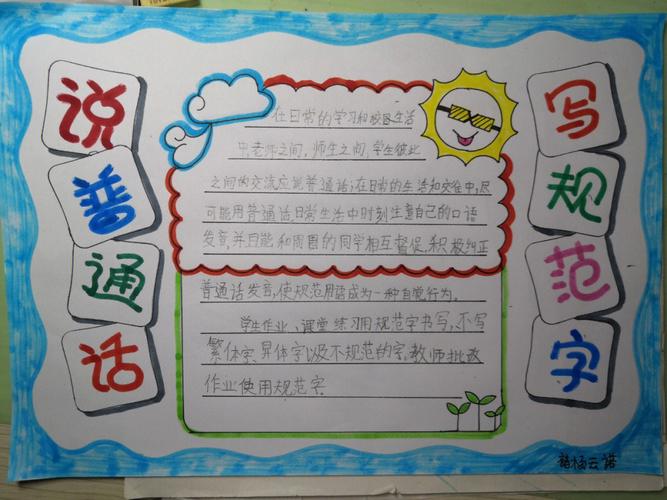 说普通话
写规范字
在日常的学习和校园生活
中,老师之间,师生之间,学生彼此
之间的交流应说普通话;在日常的生活和交往中,尽
可能用普通话,日常生活中时刻注意自己的口语
发音,并且能和周围的同学相互督促,积极纠正
普通话发音,使规范用语成为一种自觉行为。
学生作业、课堂练习用规范字书写,不写
繁体字、异体字以及不规范的字,教师批改
作业使用规范字.
云诺